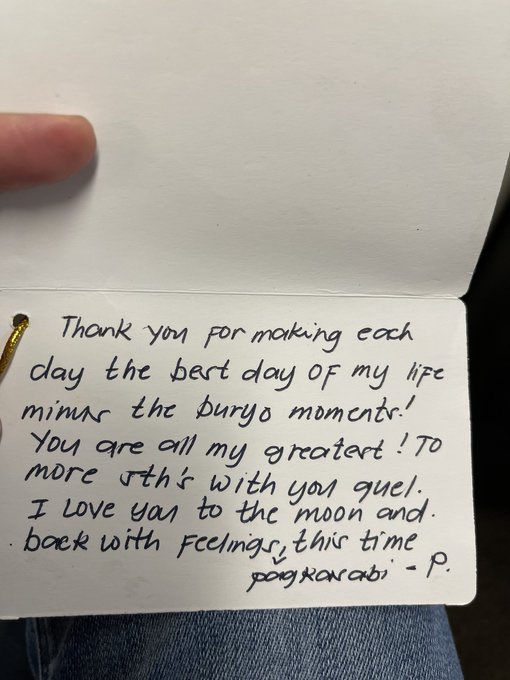 Thank you for making each
day the best day of my life
minus the buryo moments!
You are all my greatest! To
more sth's with you guel.
I love you to the moon and.
back with feelings, this time
pagkasabi - P.